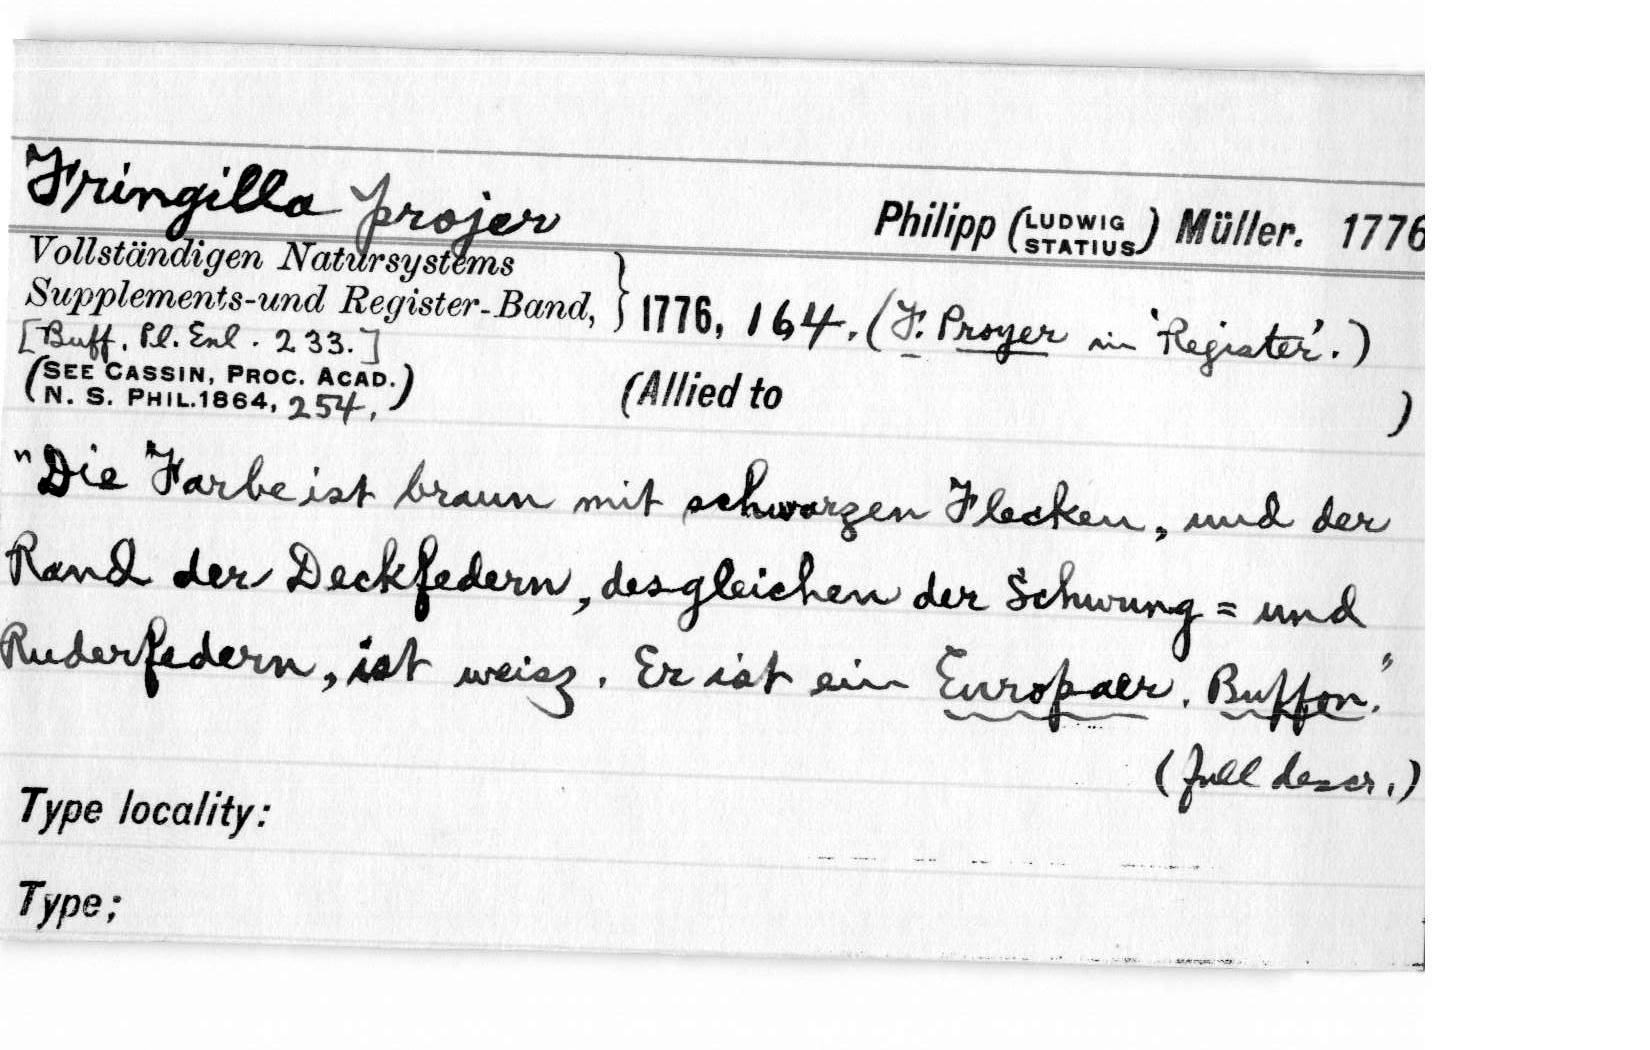 Fringilla projer
Philipp (LUDWIG STATIUS) Müller. 1776
Vollständigen Natursystems
Supplements-und Register-Band, } 1776, 164. (F. Proyer in 'Register'.)
[Buff. Pl. Enl. 233.]
(SEE CASSIN, PROC. ACAD.
N. S. PHIL. 1864, 254,)
(Allied to )
"Die Farbe ist braun mit schwarzen Flecken, und der
Rand der Deckfedern, desgleichen der Schwung = und
Ruderfedern, ist weisz. Er ist ein Europaer. Buffon."
(full descr.)
Type locality:
Type;